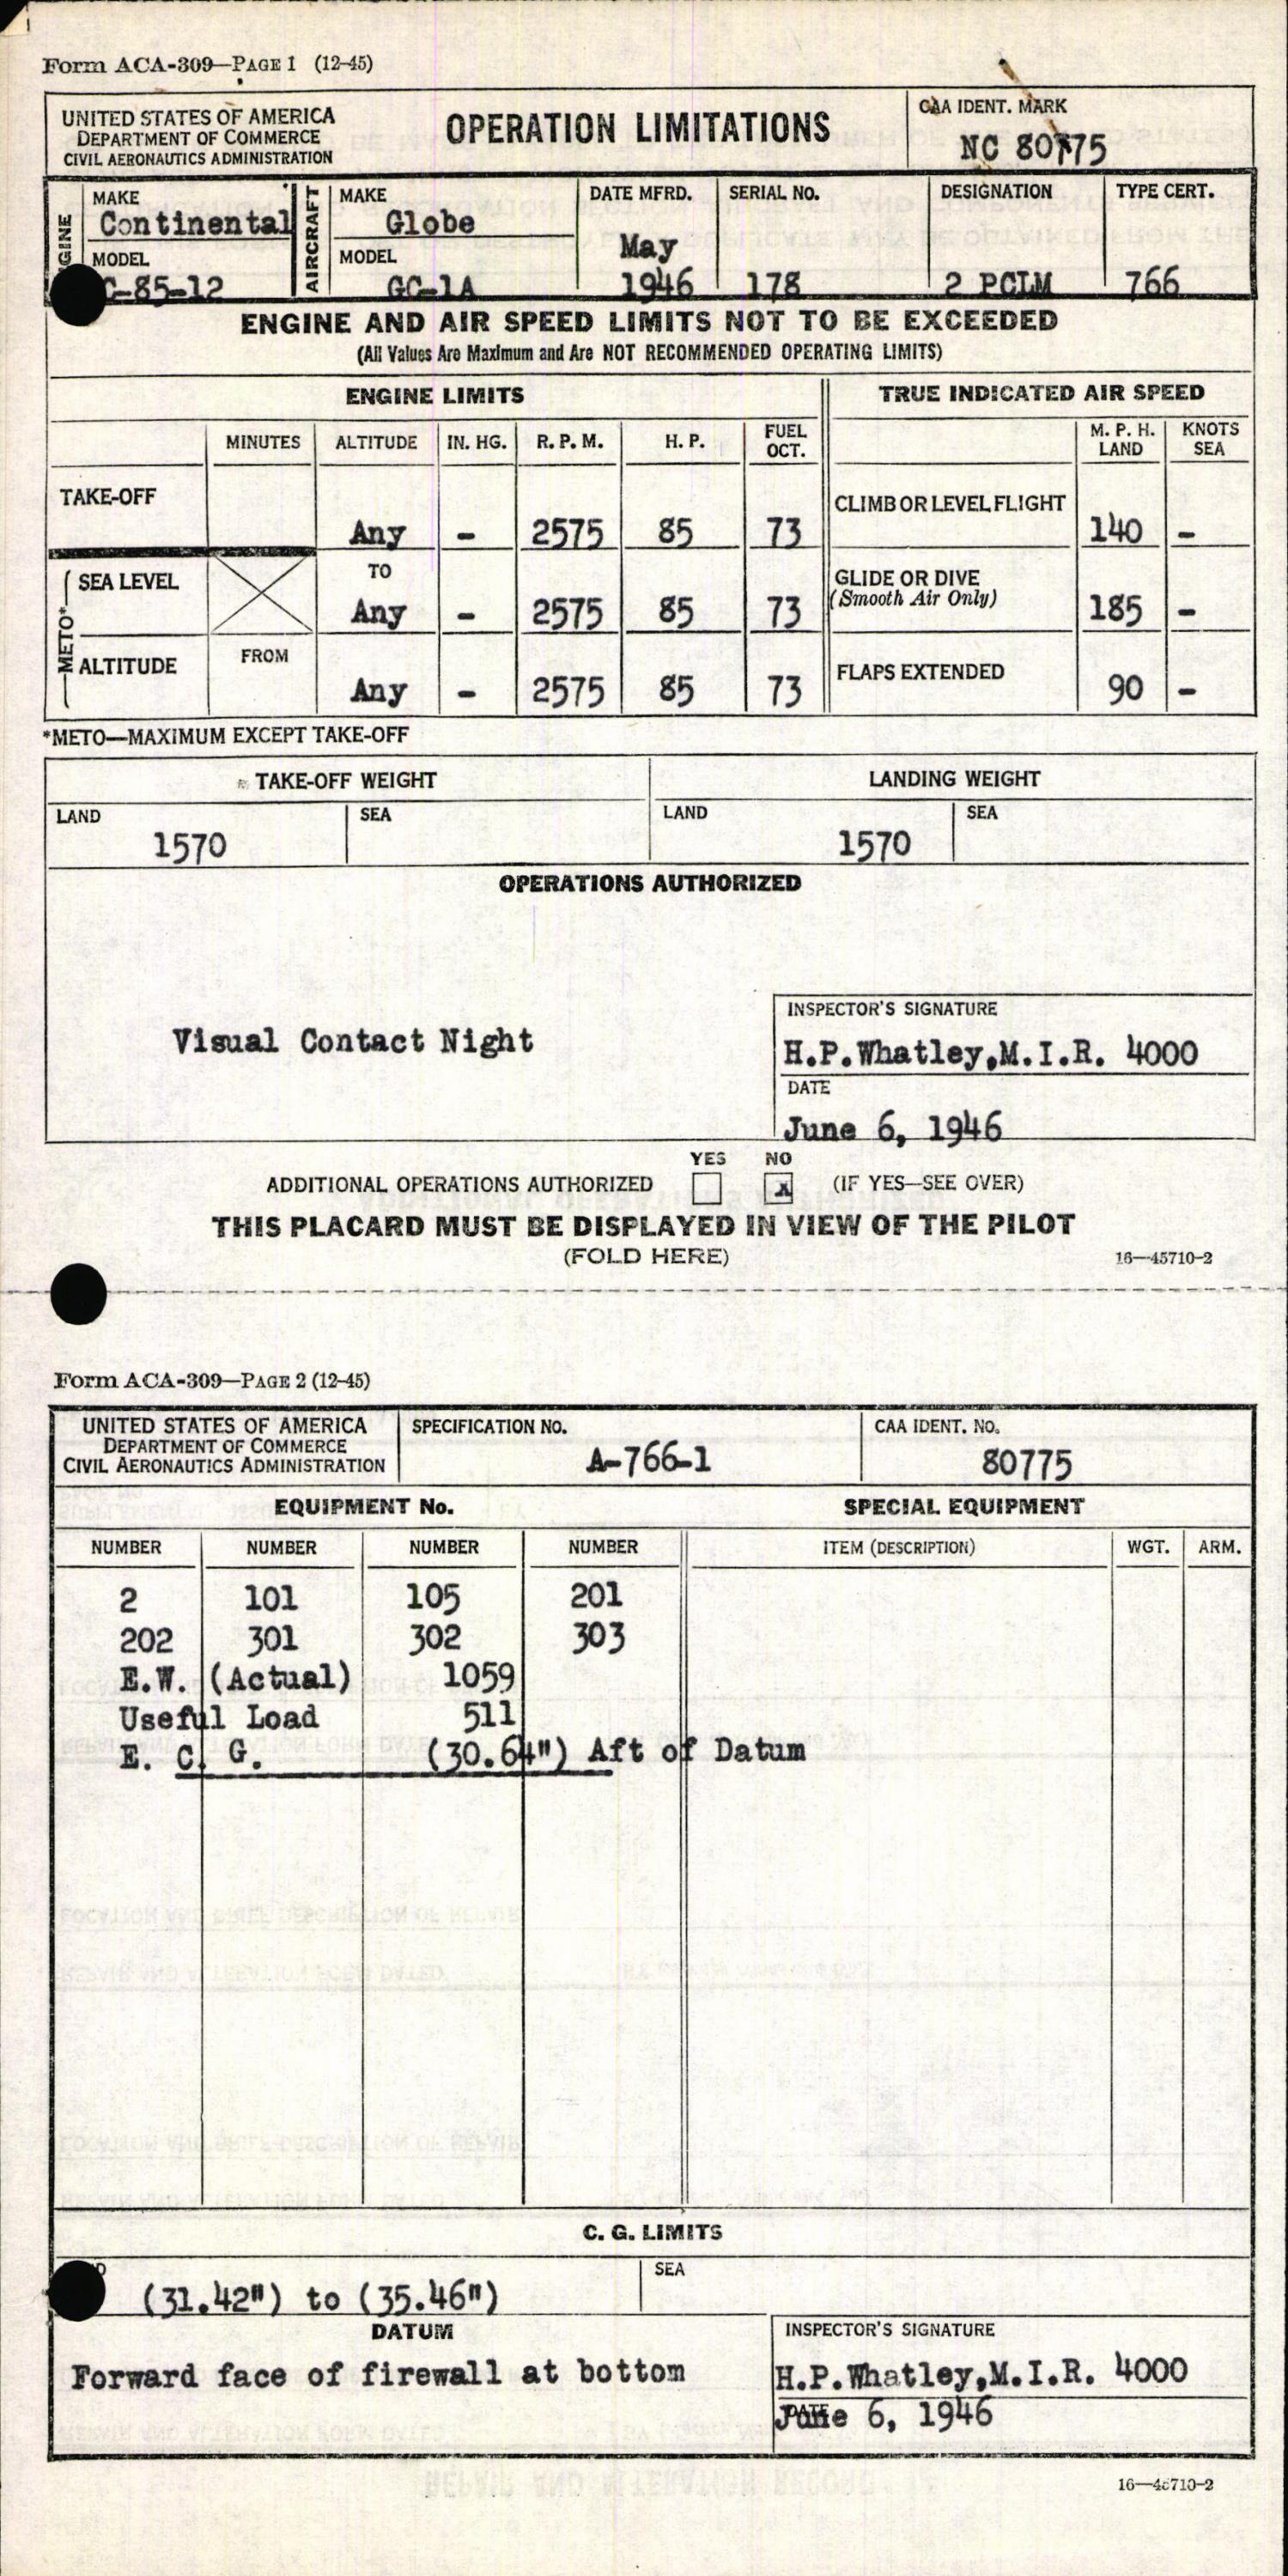 Form ACA-309—PAGE 1 (12-45)
UNITED STATES OF AMERICA
DEPARTMENT OF COMMERCE
CIVIL AERONAUTICS ADMINISTRATION
OPERATION LIMITATIONS
CAA IDENT. MARK
NC 80775
ENGINE
MAKE
Continental
MODEL
C-85-12
AIRCRAFT
MAKE
Globe
MODEL
GC-1A
DATE MFRD.
May
1946
SERIAL NO.
178
DESIGNATION
2 PCLM
TYPE CERT.
766
ENGINE AND AIR SPEED LIMITS NOT TO BE EXCEEDED
(All Values Are Maximum and Are NOT RECOMMENDED OPERATING LIMITS)
ENGINE LIMITS
TRUE INDICATED AIR SPEED
MINUTES ALTITUDE IN. HG. R. P. M. H. P. FUEL OCT.
M. P. H. LAND KNOTS SEA
TAKE-OFF Any - 2575 85 73
CLIMB OR LEVEL FLIGHT 140 -
METO*
SEA LEVEL TO Any - 2575 85 73
GLIDE OR DIVE
(Smooth Air Only) 185 -
ALTITUDE FROM Any - 2575 85 73
FLAPS EXTENDED 90 -
*METO—MAXIMUM EXCEPT TAKE-OFF
TAKE-OFF WEIGHT LANDING WEIGHT
LAND SEA LAND SEA
1570 1570
OPERATIONS AUTHORIZED
Visual Contact Night
INSPECTOR'S SIGNATURE
H.P.Whatley,M.I.R. 4000
DATE
June 6, 1946
YES NO
ADDITIONAL OPERATIONS AUTHORIZED x (IF YES—SEE OVER)
THIS PLACARD MUST BE DISPLAYED IN VIEW OF THE PILOT
(FOLD HERE) 16—45710-2
Form ACA-309—PAGE 2 (12-45)
UNITED STATES OF AMERICA
DEPARTMENT OF COMMERCE
CIVIL AERONAUTICS ADMINISTRATION
SPECIFICATION NO.
A-766-1
CAA IDENT. NO.
80775
EQUIPMENT No. SPECIAL EQUIPMENT
NUMBER NUMBER NUMBER NUMBER ITEM (DESCRIPTION) WGT. ARM.
2 101 105 201
202 301 302 303
E.W. (Actual) 1059
Useful Load 511
E. C. G. (30.64") Aft of Datum
C. G. LIMITS
SEA
(31.42") to (35.46")
DATUM
Forward face of firewall at bottom
INSPECTOR'S SIGNATURE
H.P.Whatley,M.I.R. 4000
DATE
June 6, 1946
16—45710-2